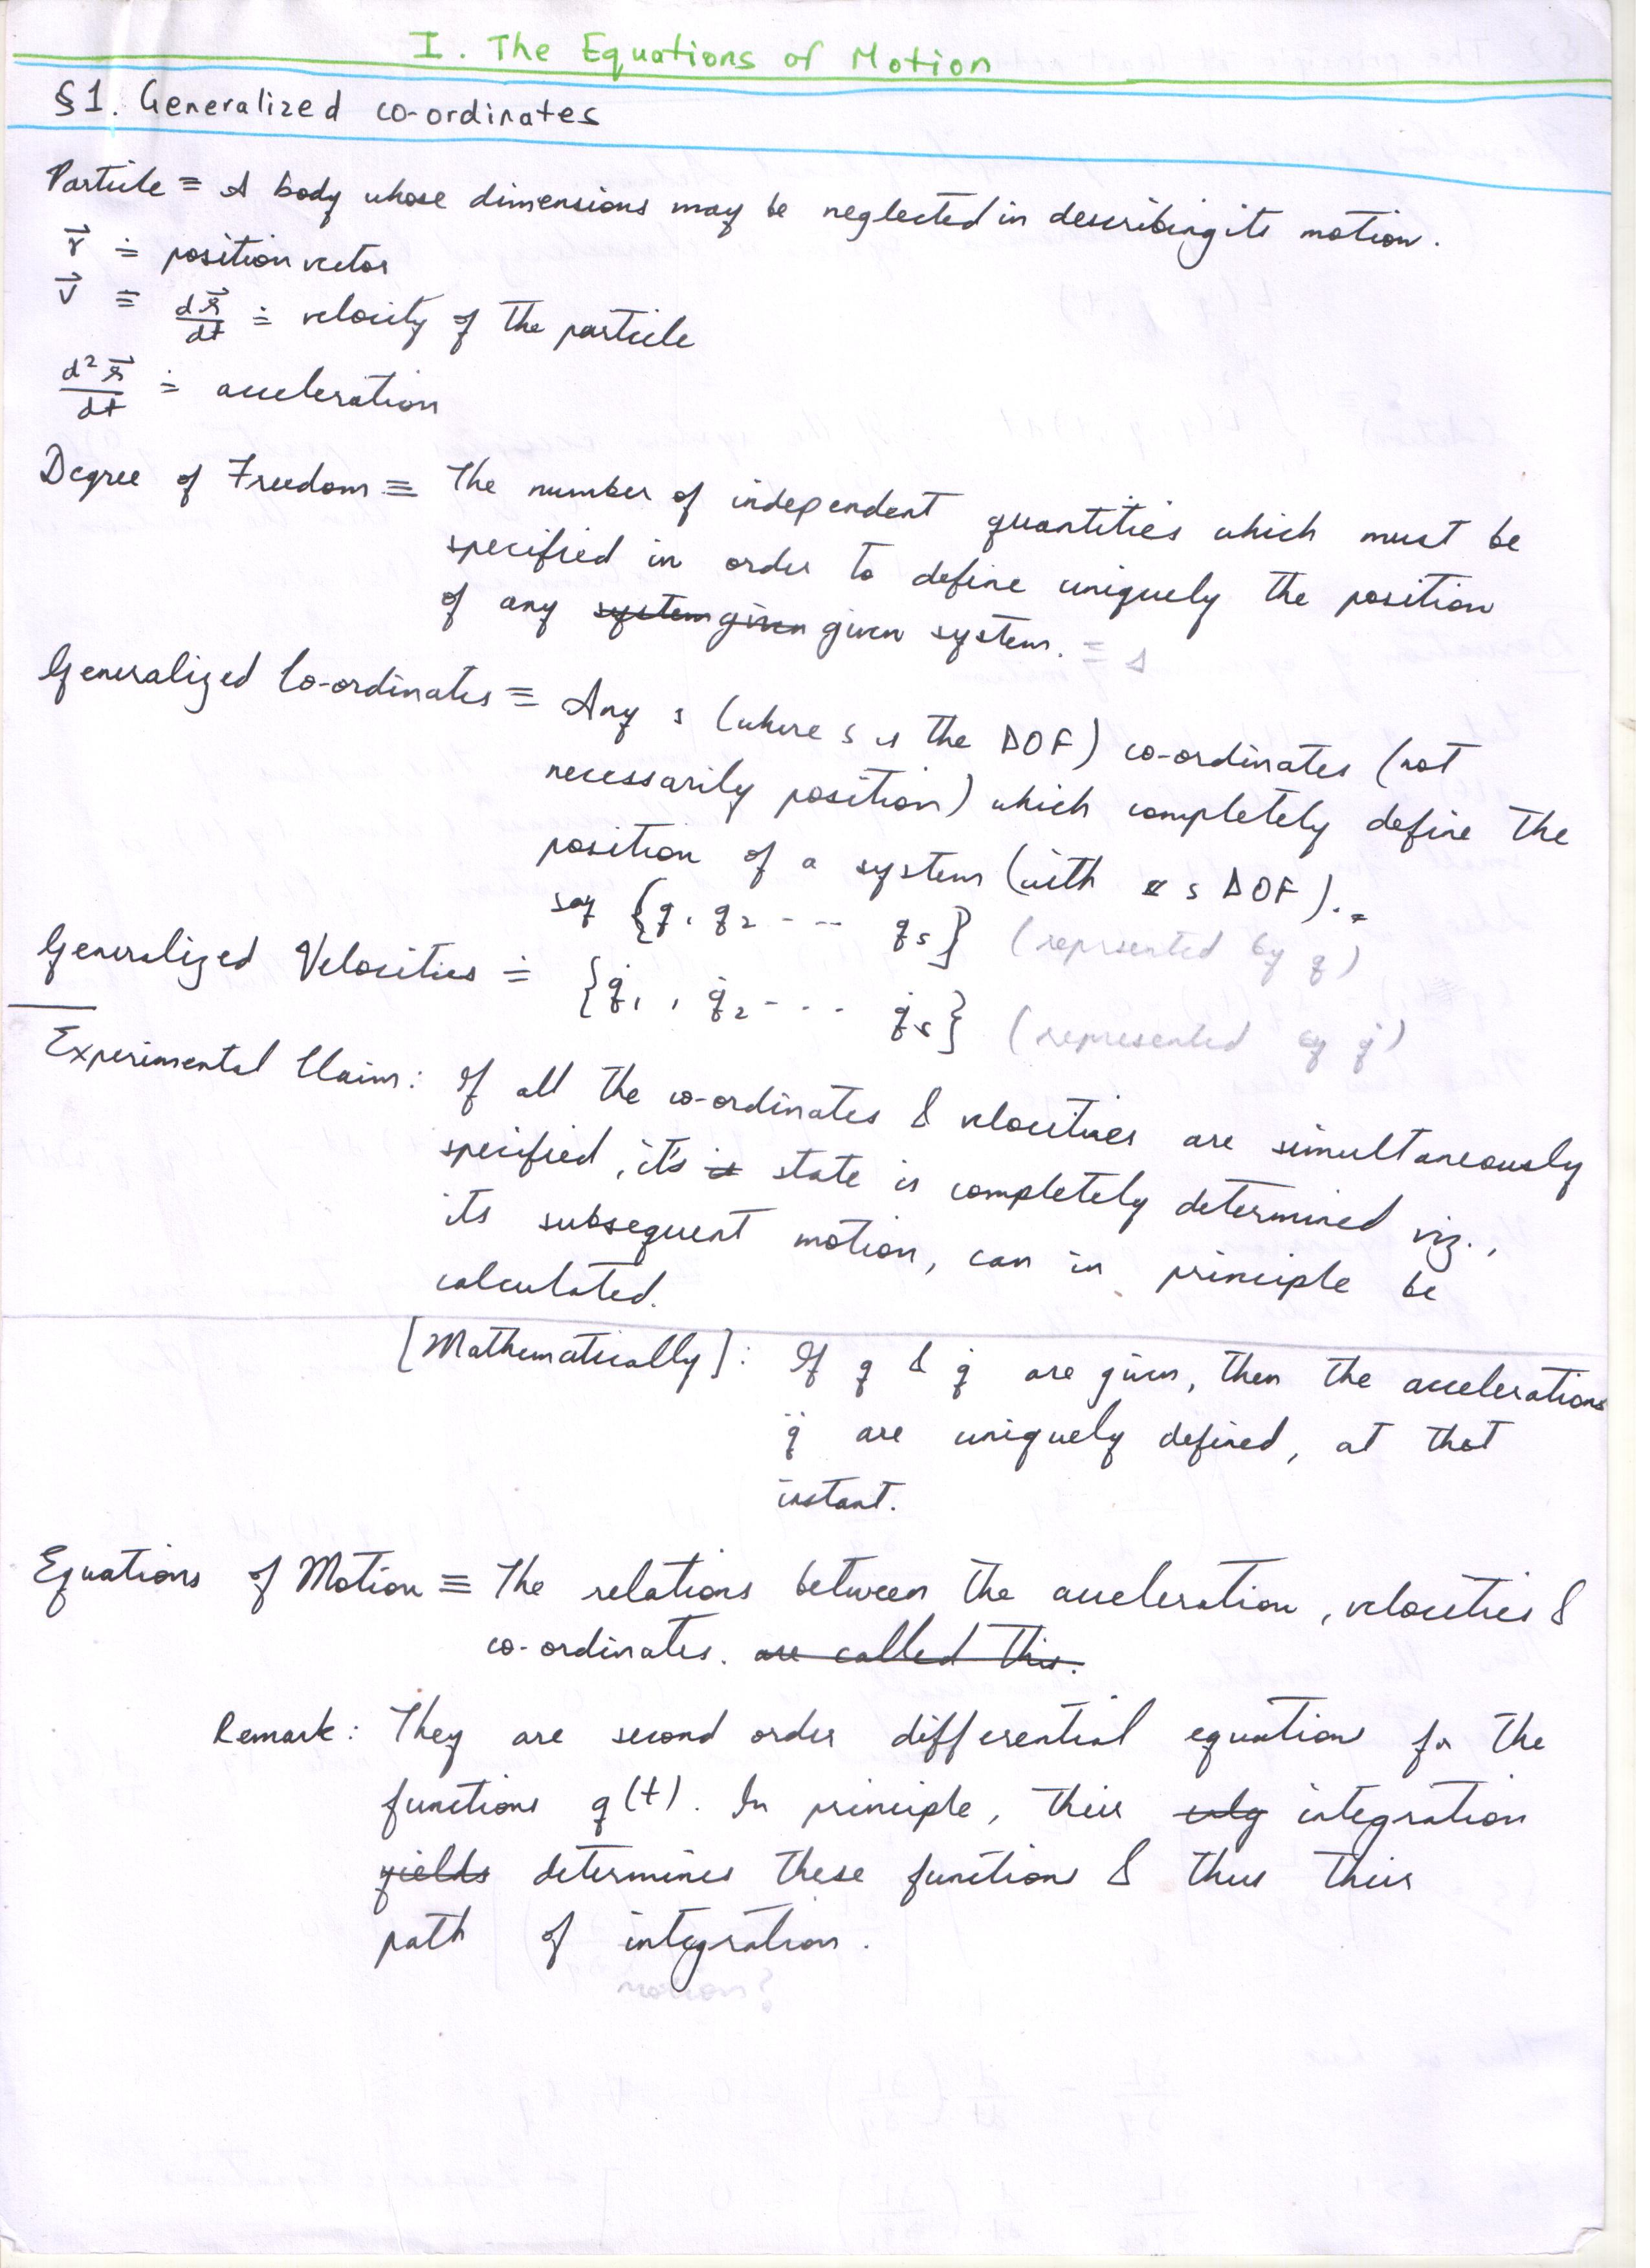 I. The Equations of Motion
§1. Generalized co-ordinates
Particle ≡ A body whose dimensions may be neglected in describing its motion.
r⃗ ≐ position vector
v⃗ ≡ dr⃗/dt ≐ velocity of the particle
d²r⃗/dt ≐ acceleration
Degree of Freedom ≡ The number of independent quantities which must be
specified in order to define uniquely the position
of any system given given system. ≡ s
Generalized Co-ordinates ≡ Any s (where s is the DOF) co-ordinates (not
necessarily position) which completely define the
position of a system (with s DOF).
say {q₁ q₂ - - - - q_s} (represented by q)
Generalized Velocities ≐ {q̇₁, q̇₂ - - - - q̇_s} (represented by q̇)
Experimental Claim: If all the co-ordinates & velocities are simultaneously
specified, it's is state is completely determined viz.,
its subsequent motion, can in principle be
calculated.
[Mathematically]: If q & q̇ are given, then the accelerations
q̈ are uniquely defined, at that
instant.
Equations of Motion ≡ The relations between the acceleration, velocities &
co-ordinates. are called this.
Remark: They are second order differential equations for the
functions q(t). In principle, their integration
yields determines these functions & thus their
path of integration.